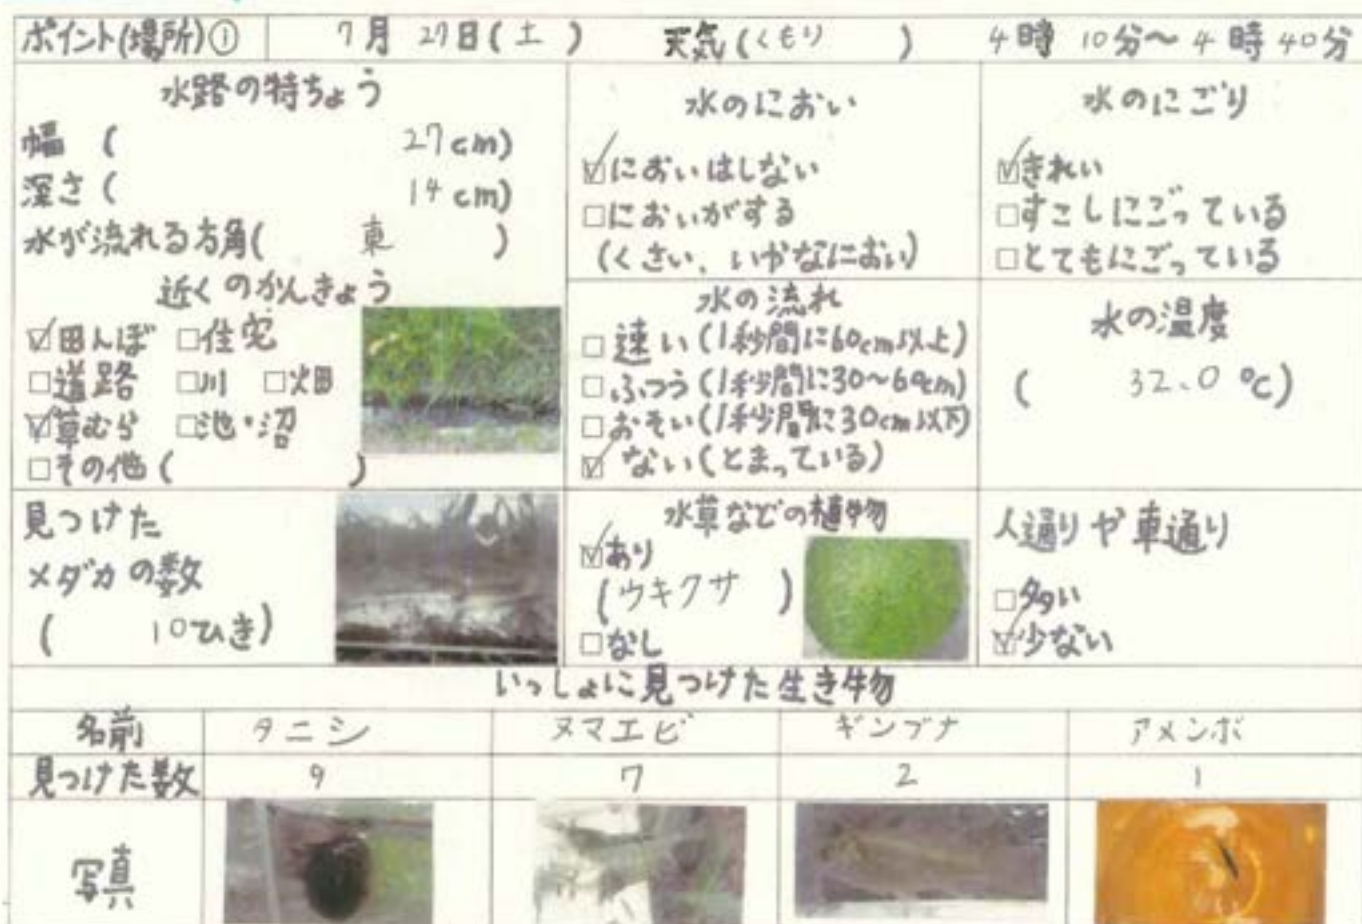 ポイント(場所)① 7月 27日(土) 天気(くもり) 4時 10分～4時 40分
水路の特ちょう
幅 ( 27cm)
深さ ( 14cm)
水が流れる方角( 東 )
近くのかんきょう
☑田んぼ □住宅
□道路 □川 □畑
☑草むら □池・沼
□その他 ( )
水のにおい
☑においはしない
□においがする
(くさい、いやなにおい)
水のにごり
☑きれい
□すこしにごっている
□とてもにごっている
水の流れ
□速い(1秒間に60cm以上)
□ふつう(1秒間に30～60cm)
□おそい(1秒間に30cm以下)
☑ない(とまっている)
水の温度
( 32.0 ℃)
見つけた
メダカの数
( 10ひき)
水草などの植物
☑あり
(ウキクサ )
□なし
人通りや車通り
□多い
☑少ない
いっしょに見つけた生き物
名前 タニシ ヌマエビ ギンブナ アメンボ
見つけた数 9 7 2 1
写真